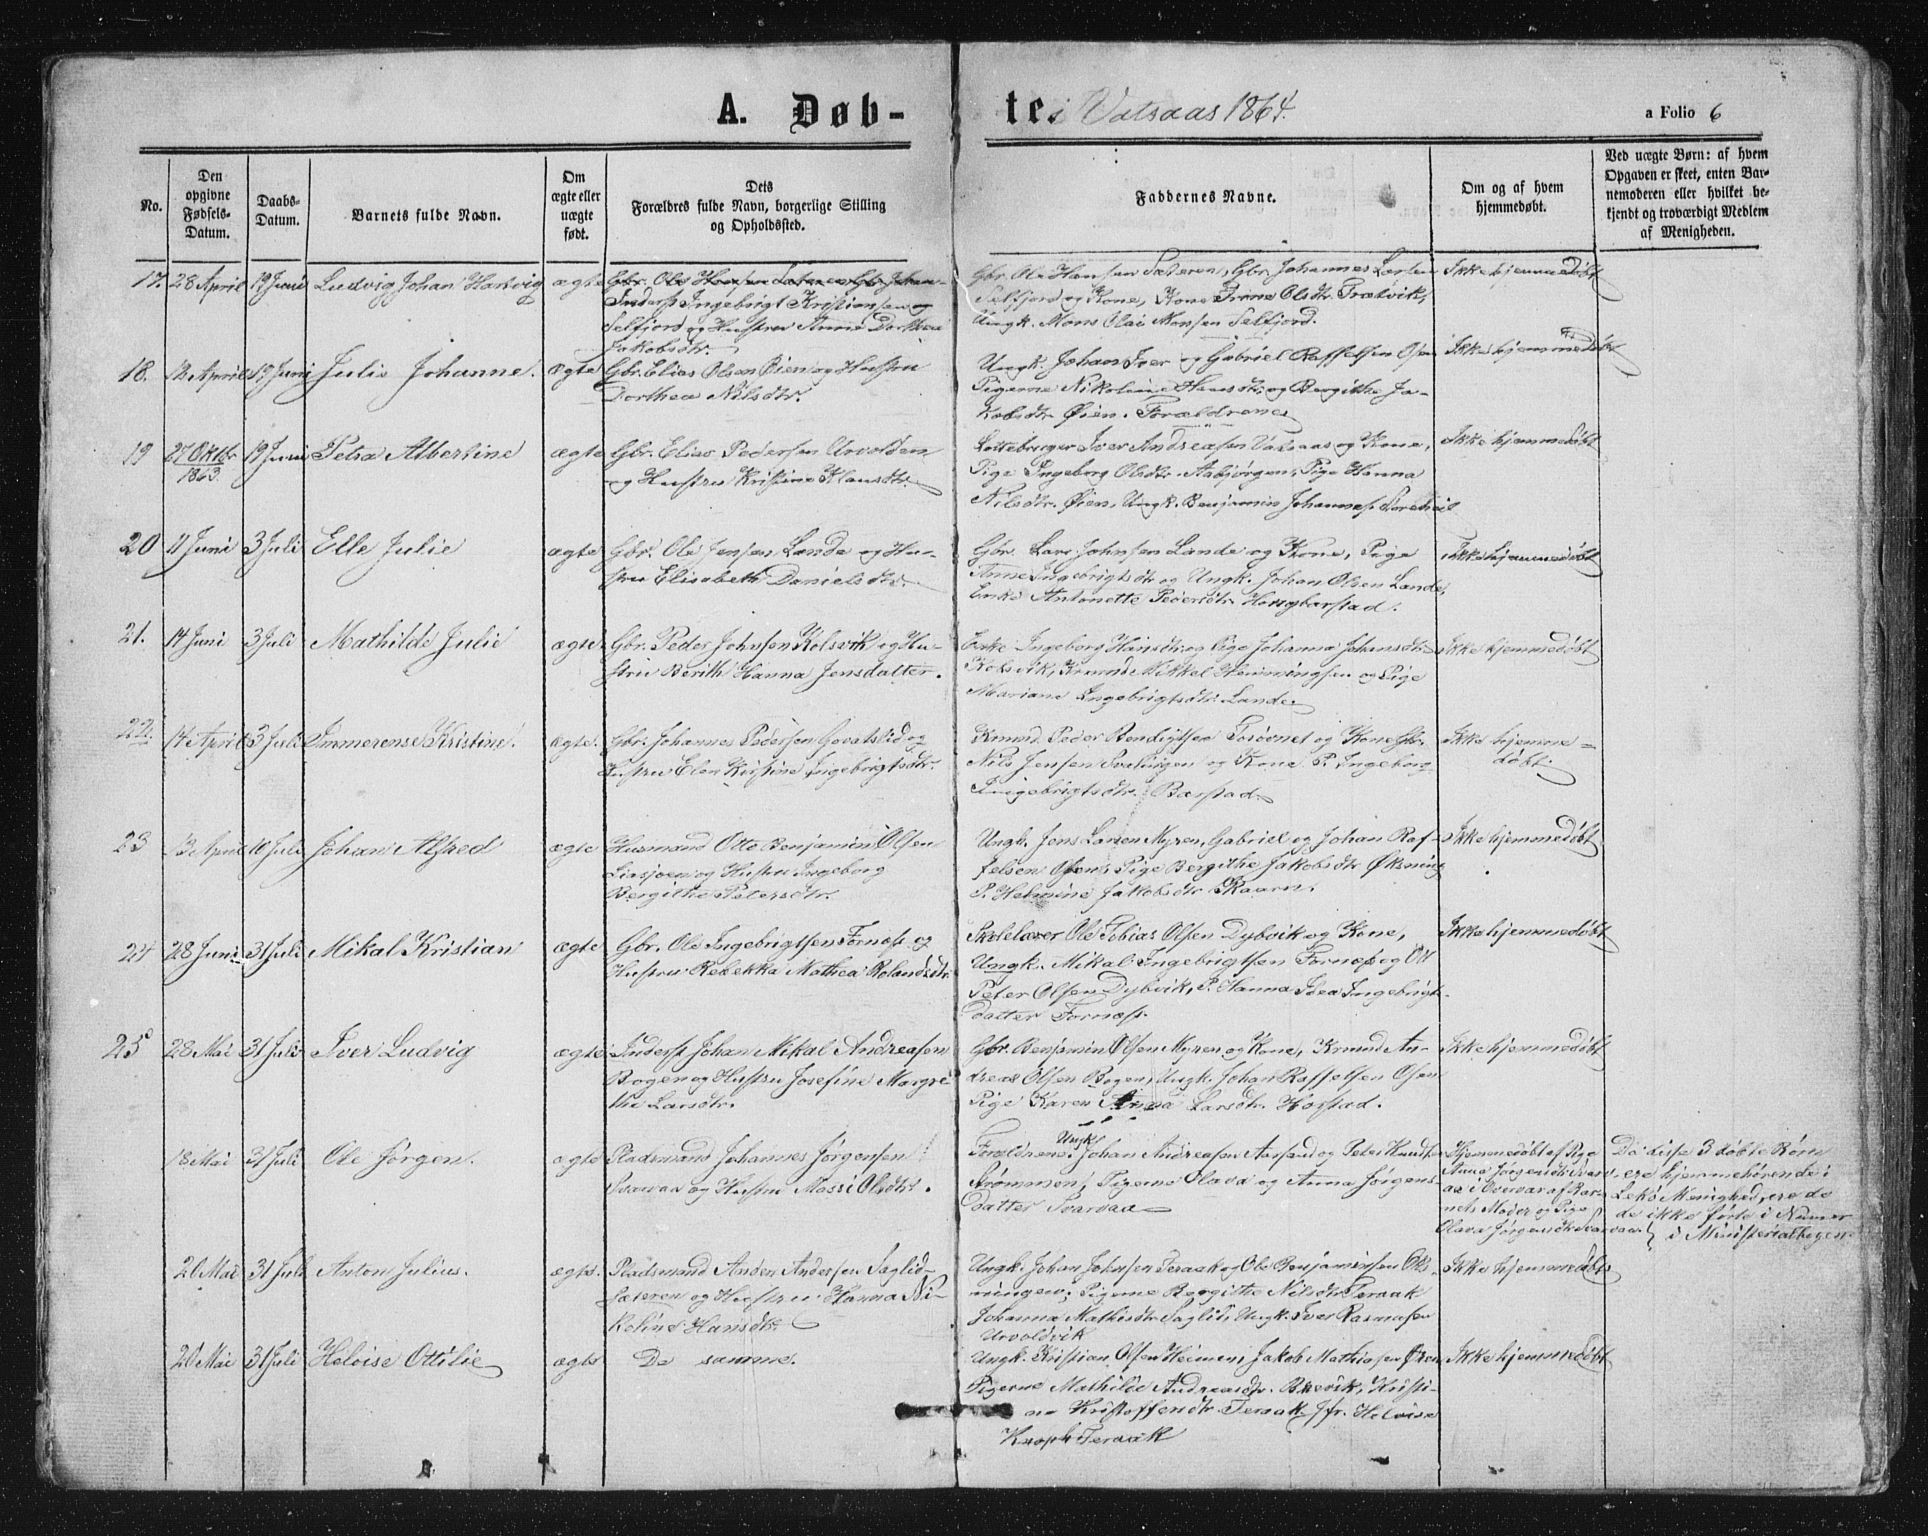 A. Døb-
te i Vatsaas 1864.
a Folio 6
No.
Den
opgivne
Fødsels-
Datum.
Daabs-
Datum.
Barnets fulde Navn.
Om
ægte eller
uægte
født.
Dets
Forældres fulde Navn, borgerlige Stilling
og Opholdssted.
Faddernes Navne.
Om og af hvem
hjemmedøbt.
Ved uægte Børn: af hvem
Opgaven er skeet, enten Bar-
nemoderen eller hvilket be-
kjendt og troværdigt Medlem
af Menigheden.
17. 28 April 19 Juni Ludvig Johan Hartvig ægte
Inderst Ingebrigt Kristiansen og
Selfjord og Hustru Anne Dorthea
Jakobsdtr.
Gbr. Ole Hansen Sæteren, Gbr. Johannes Larsen
Selfjord og Kone, Kone Trine Olsdtr. Trætvik,
Ungk. Mons Olai Monsen Selfjord.
Ikke hjemmedøbt
18. 12 April 19 Juni Julie Johanne. ægte
Gbr. Elias Olsen Øien og Hustru
Dorthea Nilsdtr.
Ungk. Johan Iver og Gabriel Raffelsen Osen
Pigerne Nikoline Hansdtr. og Bergithe Ja-
kobsdtr Øien. Forældrene
Ikke hjemmedøbt
19 27 Oktbr 1863. 19 Juni Petra Albertine ægte
Gbr. Elias Pedersen Urvolden
og Hustru Kristine Klausdtr.
Iver Andreasen Vatsaas og Kone,
Pige Ingeborg Olsdtr. Aabjørgen, Pige Hanna
Nilsdtr. Øien, Ungk. Benjamin Johannes.
Ikke hjemmedøbt
20 11 Juni 3 Juli Elle Julie ægte
Gbr. Ole Jensen Lande og Hu-
stru Elisabeth Danielsdtr.
Gbr. Lars Johnsen Lande og Kone, Pige
Anne Ingebrigtsdtr og Ungk. Johan Olsen Lande,
Enke Antonette Pedersdtr.
Ikke hjemmedøbt
21. 14 Juni 3 Juli Mathilde Julie ægte.
Gbr. Peder Johnsen Kolsvik og Hu-
stru Berith Hanna Jensdatter.
Enke Ingeborg Hansdtr. og Pige Johanna Johansdtr.
Kolsvik, Kmand Mikkel Hemmingsen og Pige
Mariane Ingebrigtsdtr. Lande.
Ikke hjemmedøbt
22. 14 April 3 Juli Immerense Kristine. ægte.
Gbr. Johannes Pedersen Govatslid og
Hustru Elen Kristine Ingebrigtsdtr.
Kmand Peder Bendigtsen og Kone Gbr.
Nils Jensen og Kone P. Ingeborg
Ingebrigtsdtr. Barstad.
Ikke hjemme=
døbt.
23 13 April 10 Juli Johan Alfred ægte
Husmand Otto Benjamin Olsen
og Hustru Ingeborg
Bergithe Petersdtr.
Ungk. Jens Larsen Myren, Gabriel og Johan Raf-
felsen Osen, Pige Bergithe Jakobsdtr Øksning
P. Helmine Jakobsdtr Skaarn.
Ikke hjemmedøbt
24 28 Juni 31 Juli Mikal Kristian ægte
Gbr. Ole Ingebrigtsen Fornæss og
Hustru Rebekka Mathea Rolandsdtr.
Skolelærer Ole Tobias Olsen Dybvik og Kone,
Ungk. Mikal Ingebrigtsen Fornæs og Ole
Peter Olsen Dybvik, P. Hanna Ingebrigt-
datter Fornæs.
Ikke hjemmedøbt
25 28 Mai 31 Juli Iver Ludvig ægte
Inderst Johan Mikal Andreasen
Bogen og Hustru Josefine Margre-
the Larsdtr.
Gbr. Benjamin Olsen Myren og Kone, Kmand An-
dreas Olsen Bogen, Ungk. Johan Raffelsen Osen
Pige Karen Anna Larsdtr. Horstad.
Ikke hjemmedøbt
18 Mai 31 Juli Ole Jørgen. ægte
Pladsmand Johannes Jørgensen
Svarvaa og Hustru Massi Olsdtr.
Forældrene. Ungk. Johan Andreasen og Peter Knudsen
Strømmen, Pigerne Olava og Anna Jørgens-
datter Svarvaa
Hjemmedøbt af Pige
Anna Jørgensdtr Svarv-
aa i Overvær af Bar-
nets Moder og Pige
Olava Jørgensdtr Svarvaa.
Da disse 3 døbte Børn
ere hjemmehørende i
Lekø Menighed, ere de
de ikke førte i Numer
i Ministerialbogen.
20 Mai 31 Juli Anton Julius. ægte.
Pladsmand Anders Andersen Saglid-
sæteren og Hustru Hanna Ni-
koline Hansdtr.
Ungk. Johan Johnsen Teraak og Ole Benjaminsen Øks-
ningen, Pigerne Bergithe Nilsdtr Teraak
Johanna Mathisdtr Saglid, Ungk. Iver Rasmusen
Urvoldvik
Ikke hjemmedøbt
20 Mai 31 Juli Heloise Ottilie ægte
De samme.
Ungk. Kristian Olsen Heimen, Jakob Mathiasen Øren
Pigerne Mathilde Andreasdtr. Brevik, Kristi-
ne Kristoffersdtr Teraak. Jfr. Heloise
Knoph Teraak
Ikke hjemmedøbt